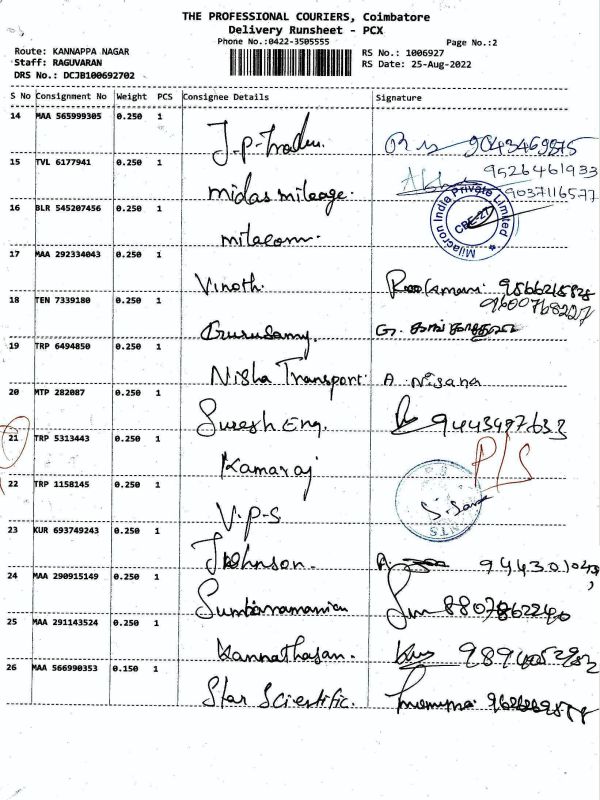 THE PROFESSIONAL COURIERS, Coimbatore
Delivery Runsheet - PCX
Phone No.:0422-3505555
Page No.:2
Route: KANNAPPA NAGAR
RS No.: 1006927
Staff: RAGUVARAN
RS Date: 25-Aug-2022
DRS No.: DCJB100692702
S No Consignment No Weight PCS Consignee Details Signature
14 MAA 565999305 0.250 1
J-P-Traders.
15 TVL 6177941 0.250 1
9526461933
midas mileage.
9037116577
16 BLR 545207456 0.250 1
milacron.
Milacron India Private Limited
CBE-27
17 MAA 292334043 0.250 1
Vinoth.
18 TEN 7339180 0.250 1
9600768227
Gurusamy.
19 TRP 6494850 0.250 1
Nisha Transport. A. Nisana
20 MTP 282087 0.250 1
Suresh Eng. 9443497633
21 TRP 5313443 0.250 1
P/S
Kamaraj
22 TRP 1158145 0.250 1
V.P-S
23 KUR 693749243 0.250 1
Johnson.
24 MAA 290915149 0.250 1
8807862240
25 MAA 291143524 0.250 1
Kannathasan. 9894052982
26 MAA 566990353 0.150 1
Star Scientific.